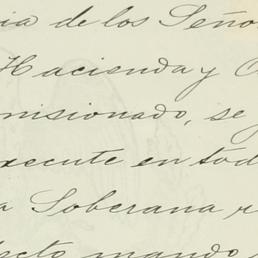 ia de los Seño
Hacienda y C
misionado, se
xecute en tód
a Soberana r
fecto mando